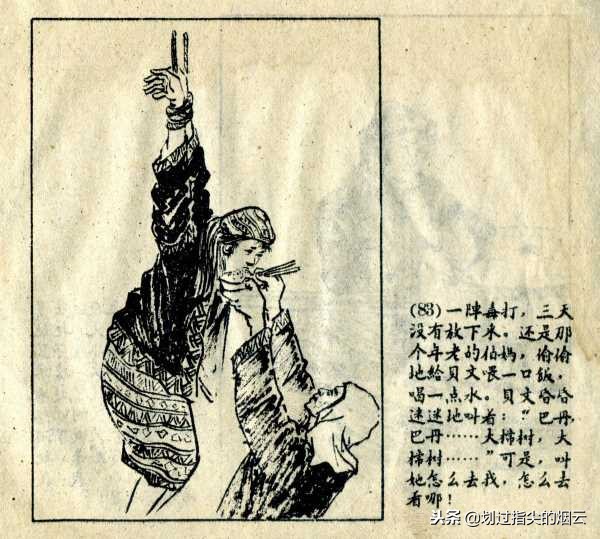 (83) 一陣毒打，三天
没有放下来。还是那
个年老的伯媽，偷偷
地給貝文喂一口飯，
喝一点水。貝文昏昏
迷迷地叫着：“巴丹，
巴丹……大榕树，大
榕树……”可是，叫
她怎么去找，怎么去
看哪！
头条 @划过指尖的烟云